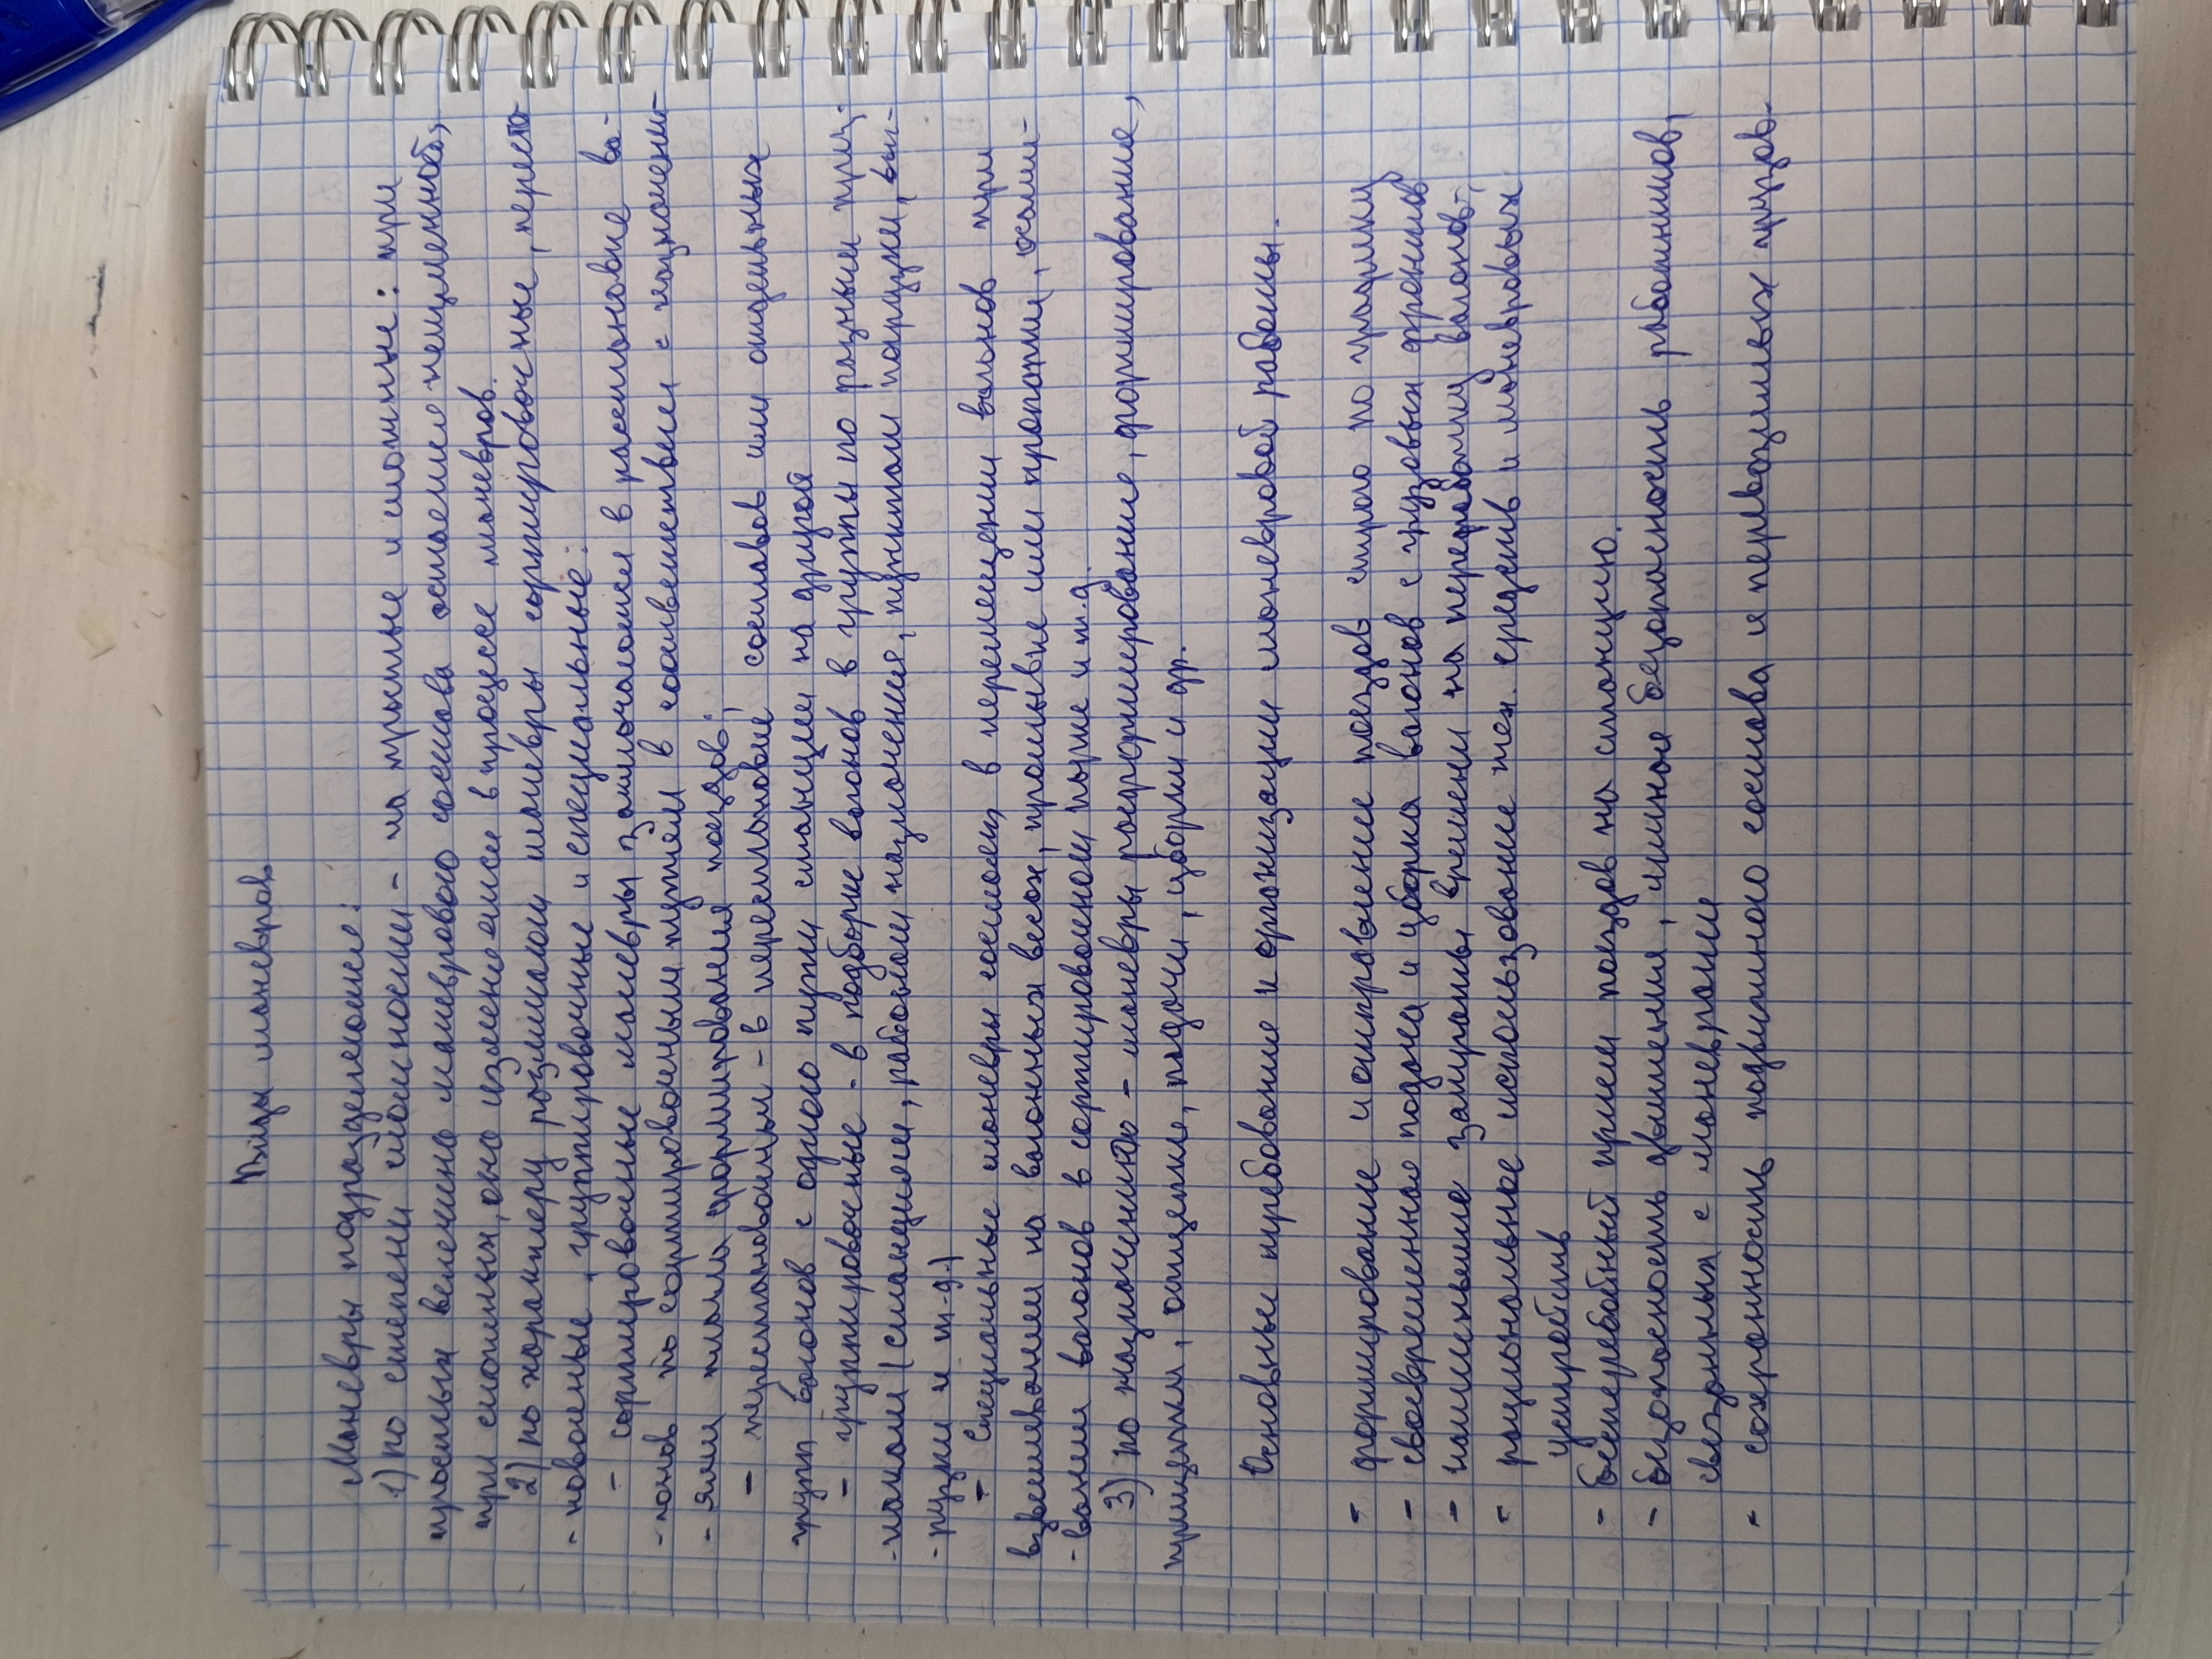 Виды маневров
Маневры подразделяются:
1) по степени сложности - на простые и сложные: при
простых величина маневрового состава остается неизменной,
при сложных, она изменяется в процессе маневров.
2) по характеру различают маневры сортировочные, переста-
- новочные, группировочные и специальные:
- сортировочные маневры заключаются в расстановке ва-
- гонов по сортировочным путям в соответствии с назначени-
- ями плана формирования поездов;
- перестановочным - в перестановке составов или отдельных
групп вагонов с одного пути станции на другой
- группировочные - в подборке вагонов в группы по разным приз-
-накам (станциям, родовым назначения, пунктам погрузки, вы-
- грузки и т.д.)
- Специальные маневры состоят в перемещении вагонов при
взвешивании на вагонных весах, промывке или пропарки, осажи-
- вании вагонов в сортировочном парке и т.д.
3) по назначению - маневры расформирование, формирование,
прицепки, отцепки, подачи, уборки и др.
Основные требование к организации маневровой работы.
- формирование и отправление поездов строго по графику
- своевременная подача и уборка вагонов с грузовых фронтов
- наименьшие затраты времени на переработку вагонов,
- рациональное использование тех. средств и маневровых
устройств
- бесперебойный прием поездов на станцию.
- безопасность движения, личная безопасность работников,
связанных с маневрами
- сохранность подвижного состава и перевозимых грузов.